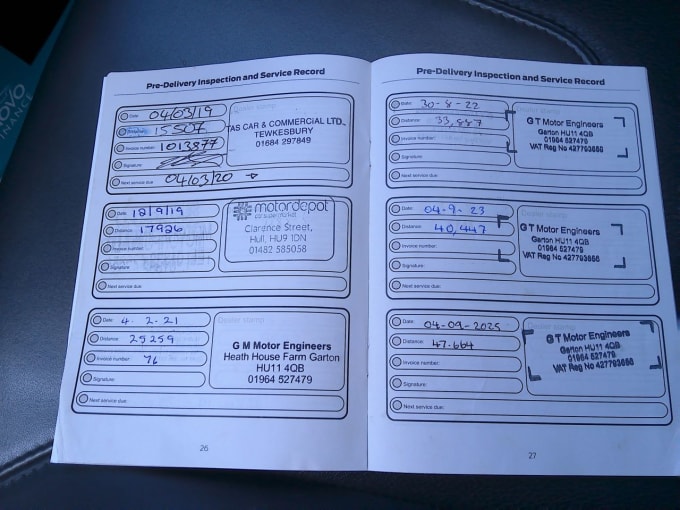 OVO
FINANCE
Pre-Delivery Inspection and Service Record
Date: 04/03/19
Dealer stamp
15507
TAS CAR & COMMERCIAL LTD.
TEWKESBURY
01684 297849
Invoice number: 1013877
Signature:
Next service due: 04/03/20
Date: 12/9/19
Distance: 17926
Invoice number:
Signature:
Next service due:
motordepot
car supermarket
Clarence Street,
Hull, HU9 1DN
01482 585058
Date: 4. 2. 21
Dealer stamp
Distance: 25259
Invoice number: 76
Signature:
Next service due:
G M Motor Engineers
Heath House Farm Garton
HU11 4QB
01964 527479
26
Pre-Delivery Inspection and Service Record
Date: 30-8-22
Distance: 33,887
Invoice number:
Signature:
Next service due:
G T Motor Engineers
Garton HU11 4QB
01964 527479
VAT Reg No 427793656
Date: 04-9-23
Dealer stamp
Distance: 40,447
Invoice number:
Signature:
Next service due:
G T Motor Engineers
Garton HU11 4QB
01964 527479
VAT Reg No 427793656
Date: 04-09-2025
Dealer stamp
Distance: 47.664
Invoice number:
Signature:
Next service due:
G T Motor Engineers
Garton HU11 4QB
01964 527479
VAT Reg No 427793656
27